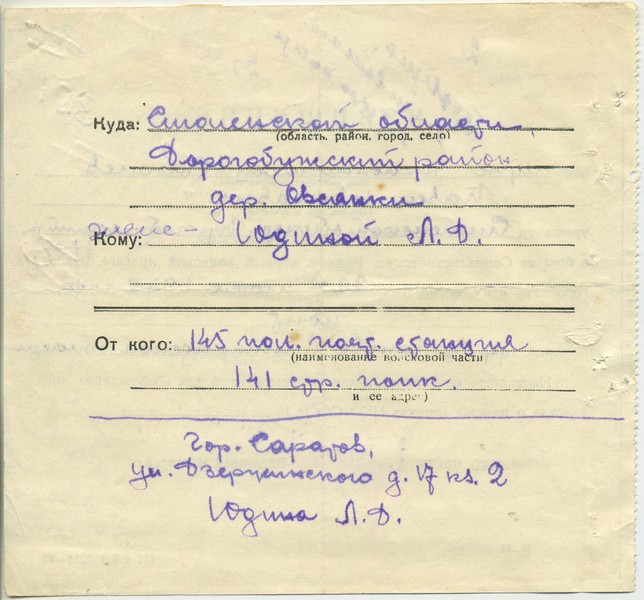 Куда: Смоленской области,
(область, район, город, село)
Дорогобужский район
дер. Овсянки
жене -
Кому: Юдиной Л.Д.
От кого: 145 пол. почт. станция
(наименование войсковой части
141 стр. полк.
и ее адрес)
Гор. Саратов,
ул. Дзержинского д. 17 кв. 2
Юдина Л.Д.